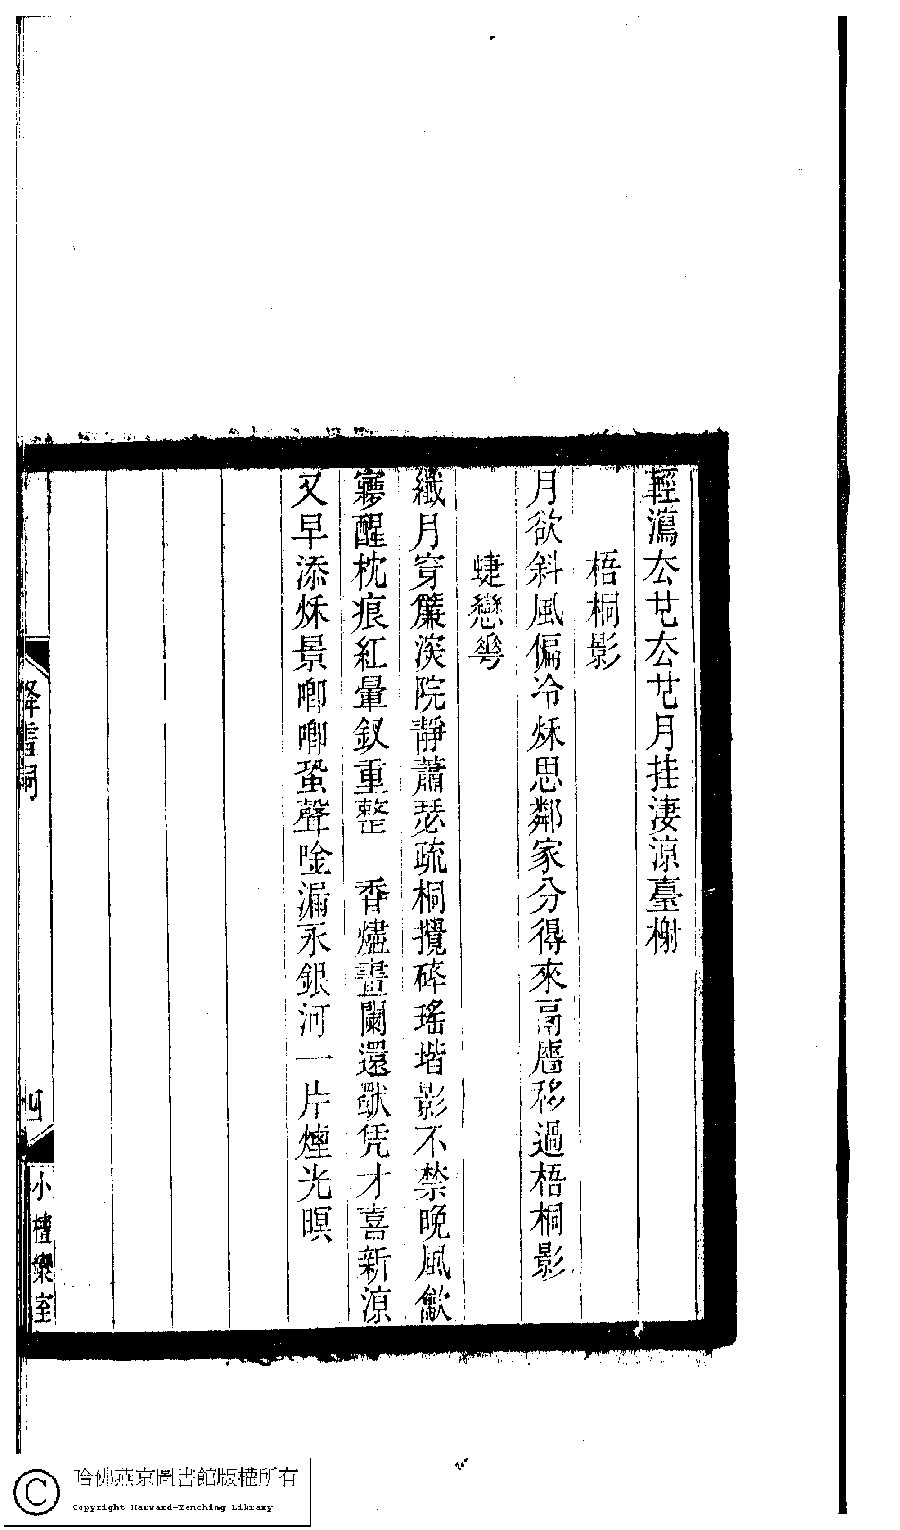 輕瀉厺艽厺艽月挂淒涼臺榭
梧桐影
月欲斜風偏冷秌思鄰家分得來鬲牆移過梧桐影
蜨戀蕚
纖月穿簾深院靜蕭瑟疏桐攪碎瑤堦影不禁晩風歙
寱醒枕痕紅暈釵重整　香燼畫闌還獣凭才喜新涼
又早添秌景唧唧蛩聲唫漏永銀河一片煙光暝
絳雪詞
四
小檀欒室
哈佛燕京圖書館版權所有
Copyright Harvard-Yenching Library